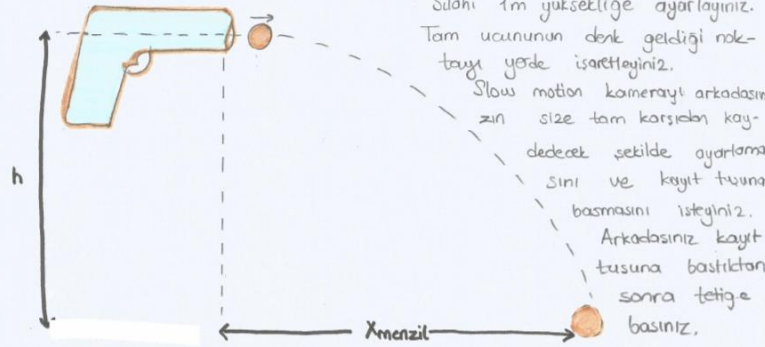 Silahı 1m yüksekliğe ayarlayınız.
Tam ucununun denk geldiği nok-
tayı yerde işaretleyiniz.
Slow motion kamerayı arkadaşın
zın size tam karşıdan kay-
dedecek şekilde ayarlama
sını ve kayıt tuşuna
basmasını isteyiniz.
Arkadaşınız kayıt
tuşuna bastıktan
sonra tetiğe
basınız.
h
Xmenzil